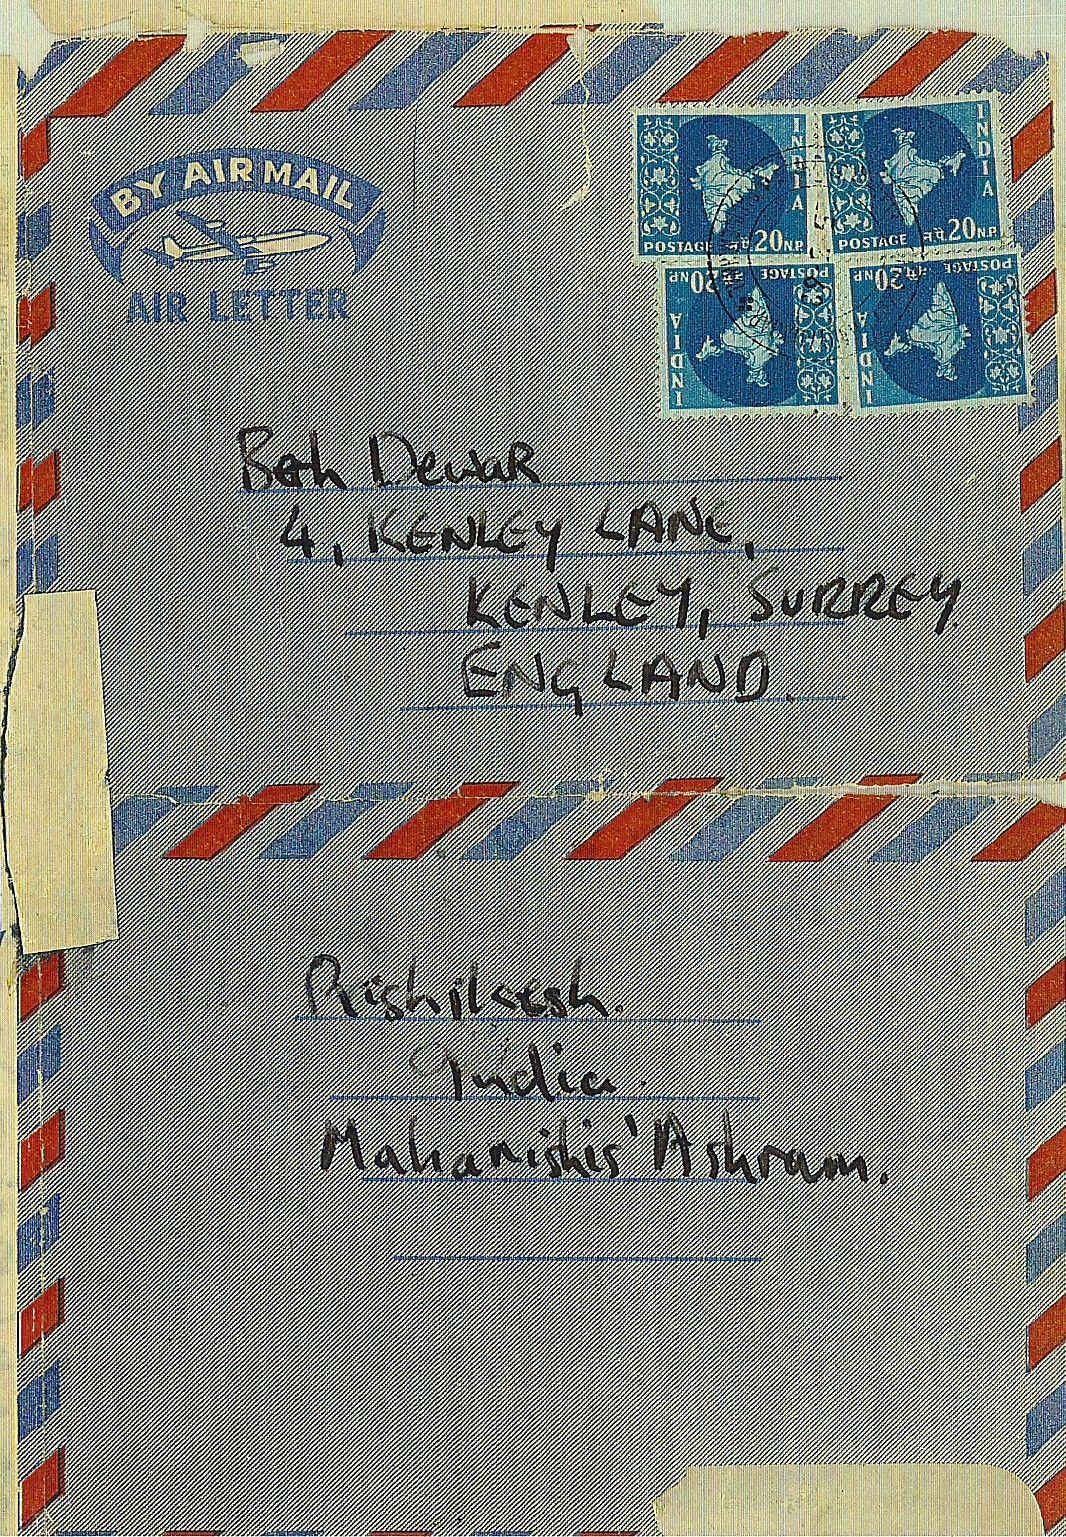 BY AIR MAIL
AIR LETTER
INDIA
INDIA
POSTAGE न.पै.20 N.P.
POSTAGE न.पै.20 N.P.
POSTAGE 20 NP
POSTAGE 20 NP
INDIA
INDIA
Beth Dewar
4, KENLEY LANE,
KENLEY, SURREY.
ENGLAND.
Rishikesh.
India.
Maharishis' Ashram.